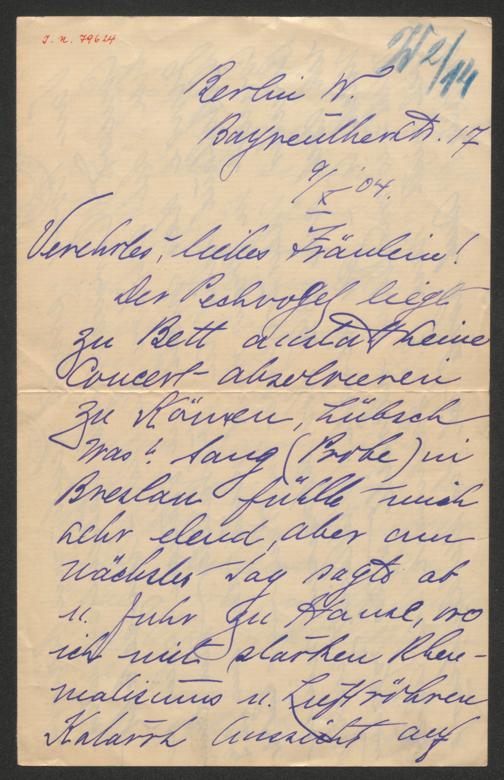 J. N. 79624
Berlin W.
Bayreutherstr. 17
9/X 04.
Verehrtes, liebes Fräulein!
Der Pechvogel liegt
zu Bett anstatt seine
Concert absolvieren
zu können, hübsch
was? Sang (Probe) in
Breslau fühlte mich
sehr elend, aber am
nächsten Tag sagte ab
u. fuhr zu Hause, wo
ich mit starken Rheu-
matismus u. Luftröhren
Katarrh Aussicht auf